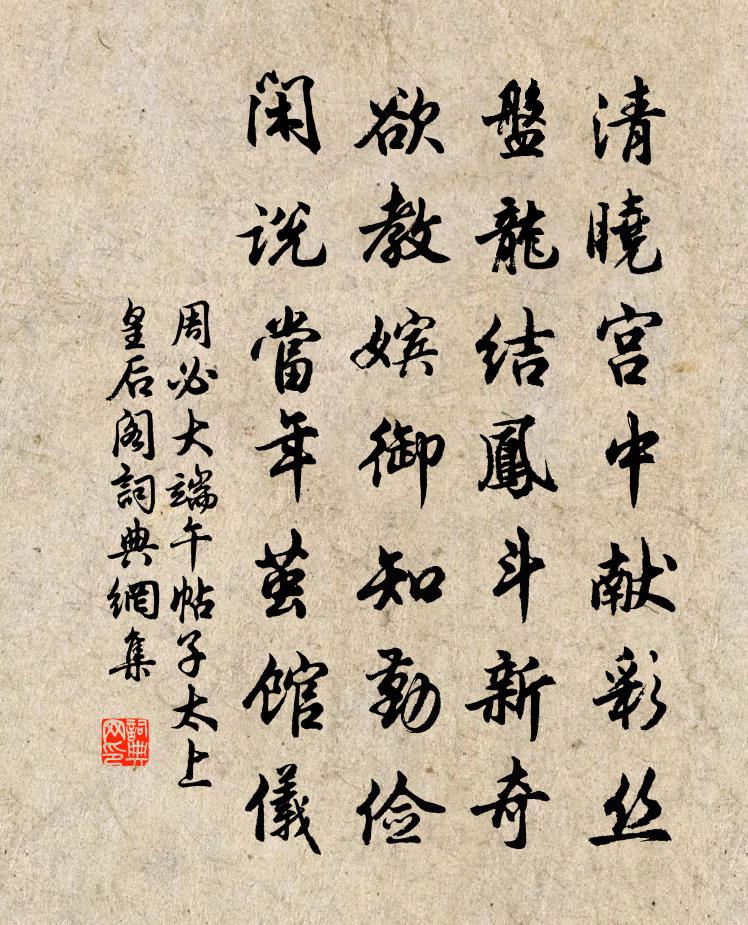 清曉宫中献彩丝
盤龍结鳳斗新奇
欲教嫔御知勤俭
闲说當年茧馆儀
周必大端午帖子太上
皇后阁詞典網集
詞典
网印